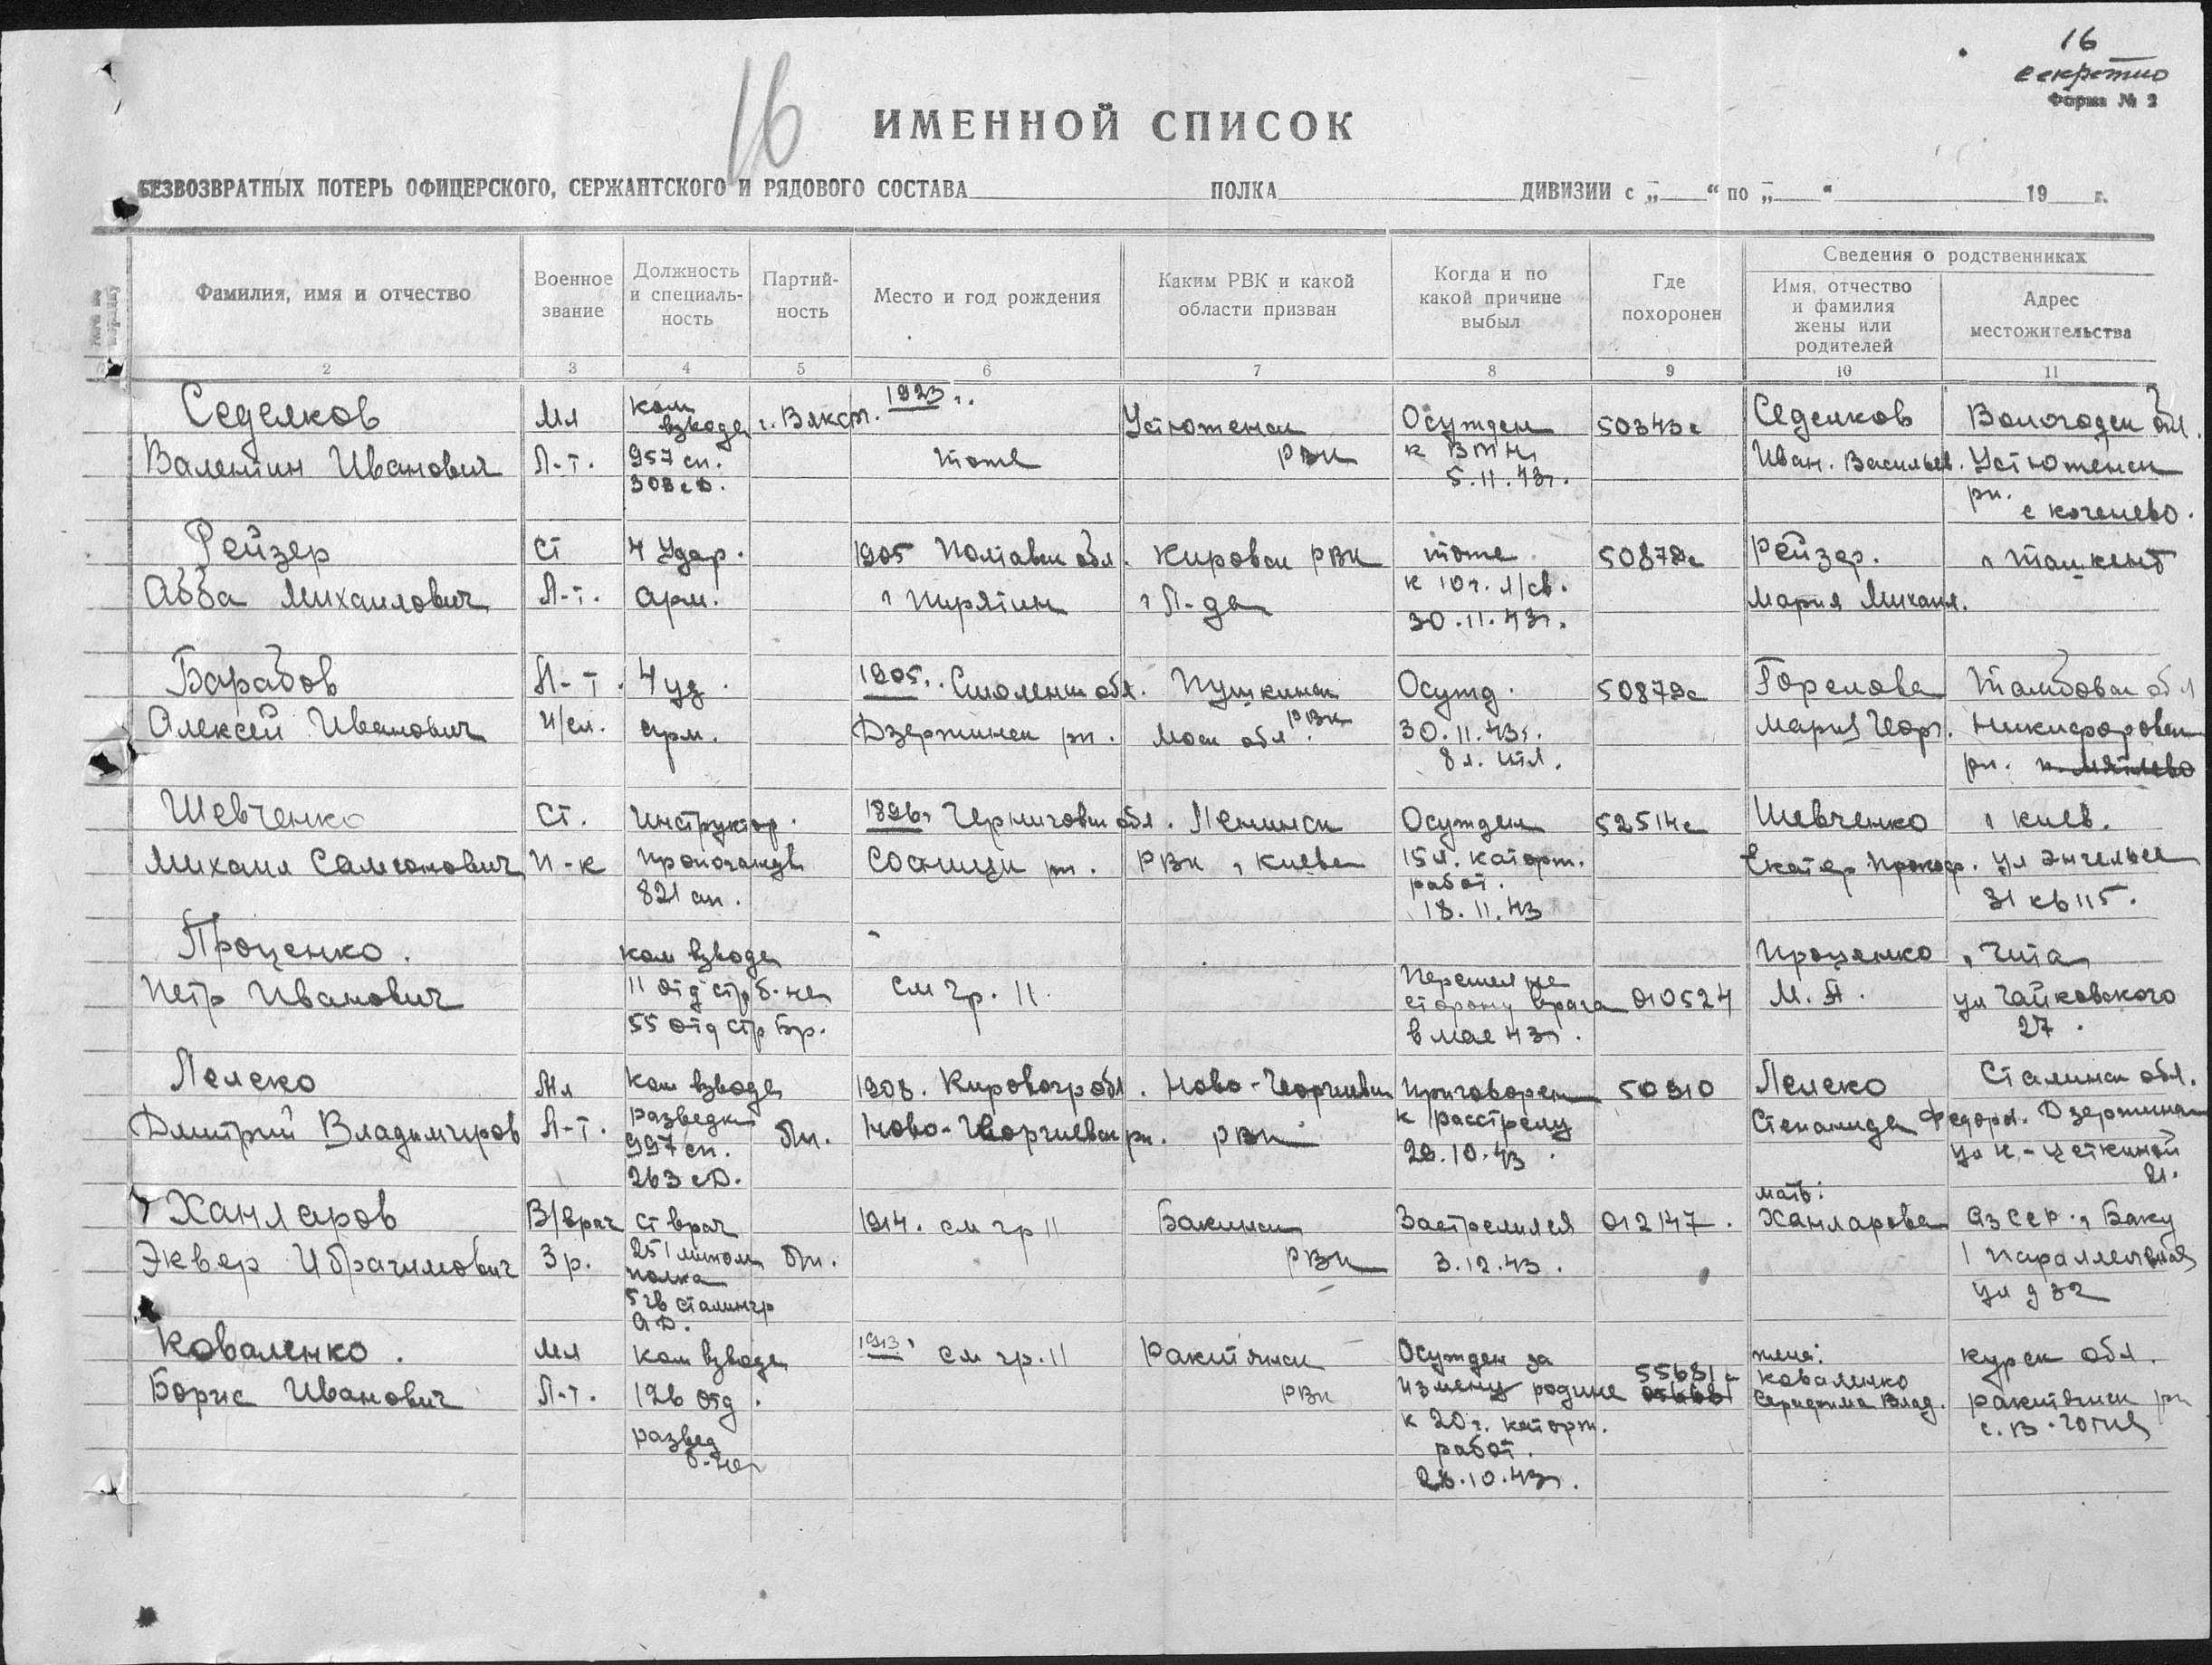 16
секретно
Форма № 2
16
ИМЕННОЙ СПИСОК
БЕЗВОЗВРАТНЫХ ПОТЕРЬ ОФИЦЕРСКОГО, СЕРЖАНТСКОГО И РЯДОВОГО СОСТАВА ПОЛКА ДИВИЗИИ с „ “ по „ “ 19 г.
Фамилия, имя и отчество
Военное звание
Должность и специаль-ность
Партий-ность
Место и год рождения
Каким РВК и какой области призван
Когда и по какой причине выбыл
Где похоронен
Сведения о родственниках
Имя, отчество и фамилия жены или родителей
Адрес местожительства
2 3 4 5 6 7 8 9 10 11
Седелков Мл ком взвода 1923 г. Устюженск Осужден 50343с Седелков Вологодск обл.
Валентин Иванович Л-т. 957 сп. тоже РВК к ВМН Иван. Васильев. Устюженск
308 сд. 5.11.43г. рн.
с коченево.
Рейзер Ст 4 Удар. 1905 Полтавск обл. Кировск РВК тоже 50872с Рейзер. г Ташкент
Абба Михаилович Л-т. арм. г Пирятин г Л-да к 10 г. л/св. Мария Михаил.
30.11.43г.
Барабов Л-т. 4 уд. 1905г. Смоленск обл. Пушкинск Осужд. 50872с Горелова Тамбовск обл
Алексей Иванович И/сл. арм. Дзержинск рн. Моск обл. РВК 30.11.43г. Мария Геор. Никифоровск
8 л. итл. рн.
Шевченко Ст. Инструктор 1896г Черниговск обл. Ленинск Осужден 52514с Шевченко г Киев.
Михаил Самсонович П-к пропоганды Сосницк рн. РВК г Киева 15 л. каторж. Екатер Прокоф. ул Энгельса
821 сп. работ. 31 кв 115.
18.11.43
Проценко. ком взвода Проценко г Чита
Петр Иванович 11 отд стр б-на см гр. 11. Перешел на сторону врага 010524 М. А. ул Чайковского
55 отд стр бр. в мае 43г. 27.
Лелеко Мл Ком взвода 1908. Кировогр обл. Ново-Георгиевск Приговорен 50910 Лелеко Сталинск обл.
Дмитрий Владимиров Л-т. разведки бп. Ново-Георгиевск рн. РВК к расстрелу Степанида Федоров. Дзержинск
997 сп. 29.10.43 ул К.-Цеткиной
263 сд. 21.
мать:
Ханларов В/врач ст врач 1914. см гр 11 Бакинск Застрелился 012147. Ханларова АзССР. г Баку
Эквер Ибрагимович 3 р. 251 мином полка бп. РВК 3.12.43. 1 Параллельная
5 гв сталингр ул д 32
АД.
Коваленко. Мл Ком взвода 1913г см гр. 11 Ракитянск Осужден за жена: Курск обл.
Борис Иванович Л-т. 126 отд. РВК измену родине 55681с Коваленко Серафима Влад. ракитянск рн
развед к 20 г. каторж. с. В.-Готня
б-на работ.
28.10.43г.